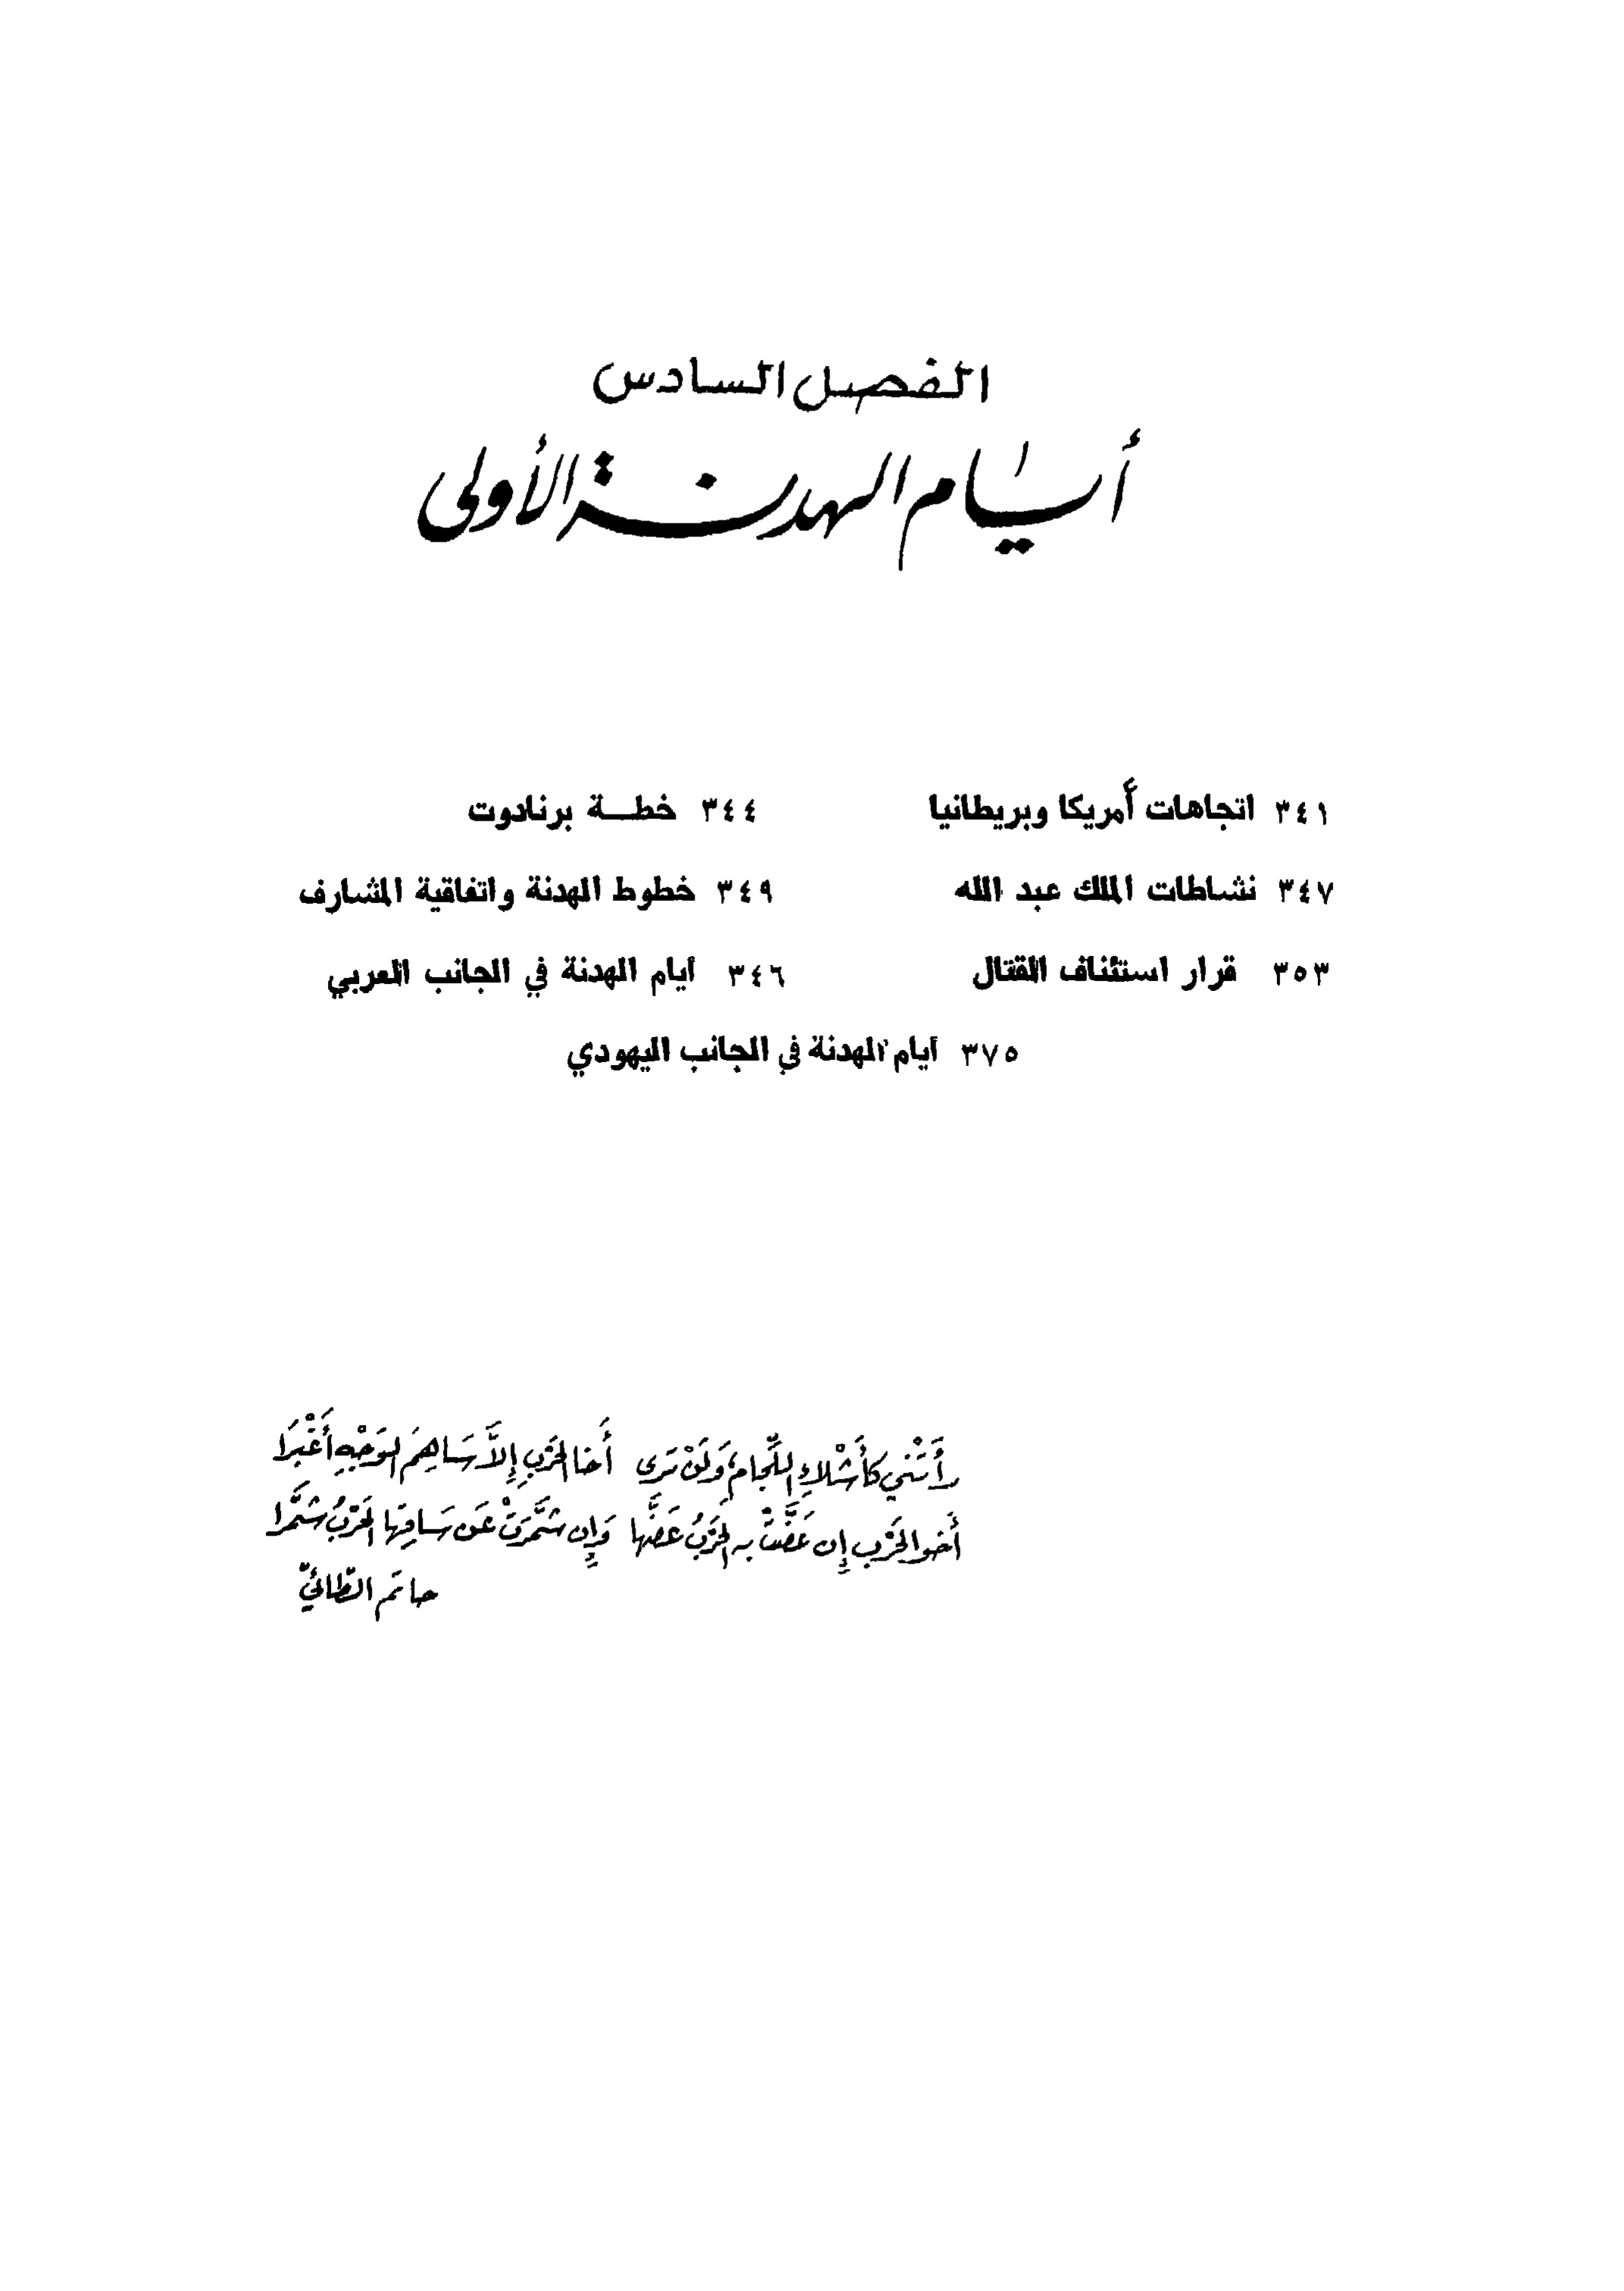 الفصل السادس
أيام الهدنة الأولى
٣٤١ اتجاهات أمريكا وبريطانيا ٣٤٤ خطة برنادوت
٣٤٧ نشاطات الملك عبد الله ٣٤٩ خطوط الهدنة واتفاقية المشارف
٣٥٣ قرار استئناف القتال ٣٤٦ أيام الهدنة في الجانب العربي
٣٧٥ أيام الهدنة في الجانب اليهودي
رَأَتْني كأَشْلاءِ اللِّجامِ وَلَنْ تَرى أَخا الحَرْبِ إِلاَّ سَاهِمَ الوَجْهِ أَغْبَرَا
أَخو الحَرْب إِن عَضَّتْ به الحَرْبُ عَضَّها وَإِن شَمَّرَتْ عَن سَاقِها الحَرْبُ شَمَّرا
حاتم الطّائيّ